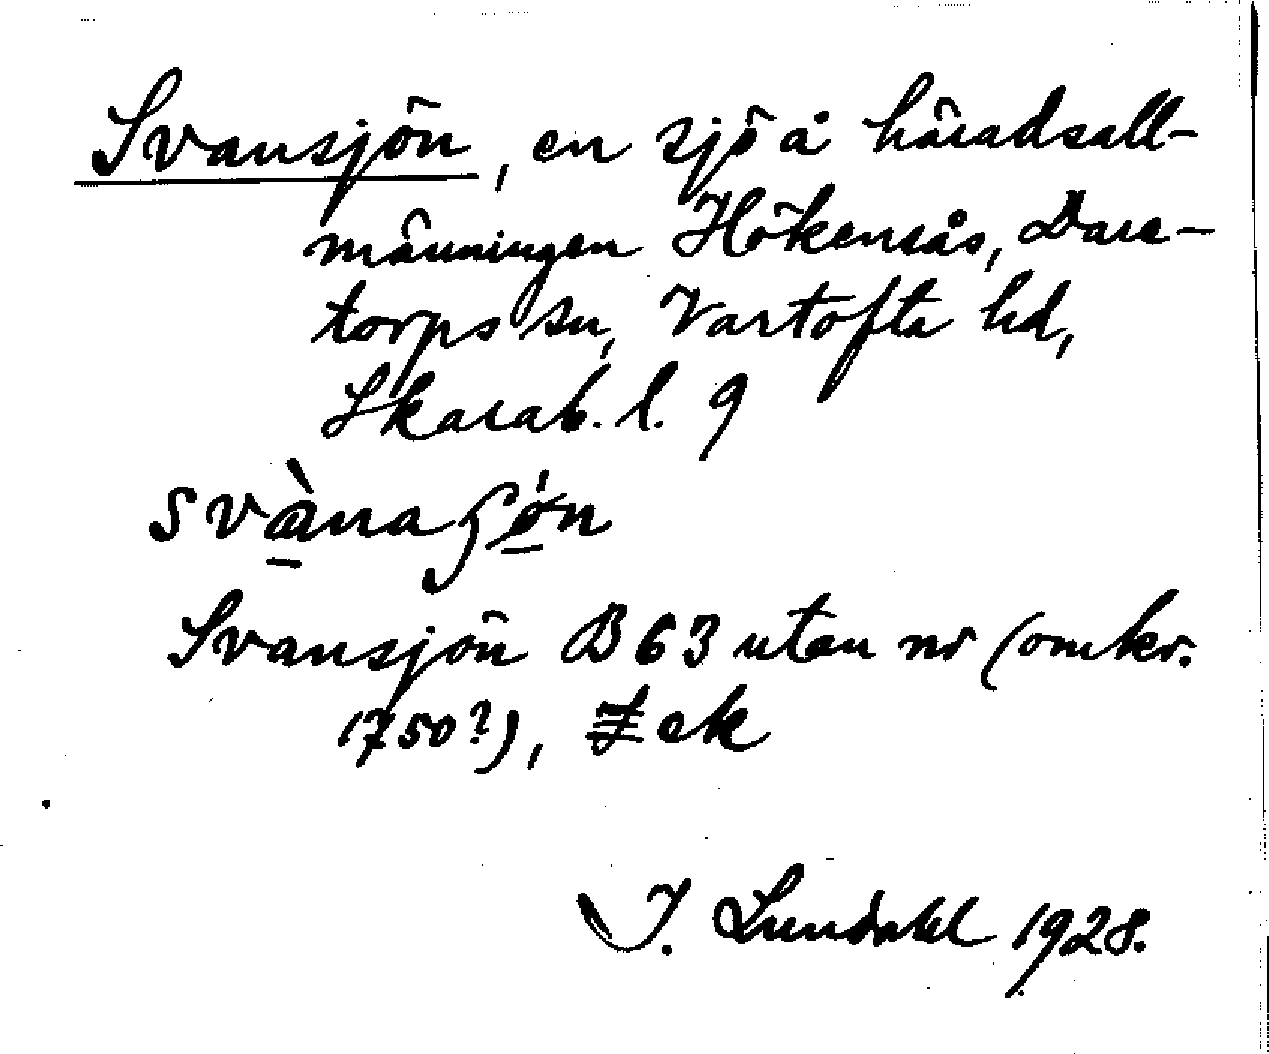 Svansjön, en sjö å häradsall-
männingen Hökensås, Dare-
torps sn, Vartofta hd,
Skarab. l. 9
Svansjön B 63 utan nr (omkr.
1750?), Z ek
I. Lundahl 1928.